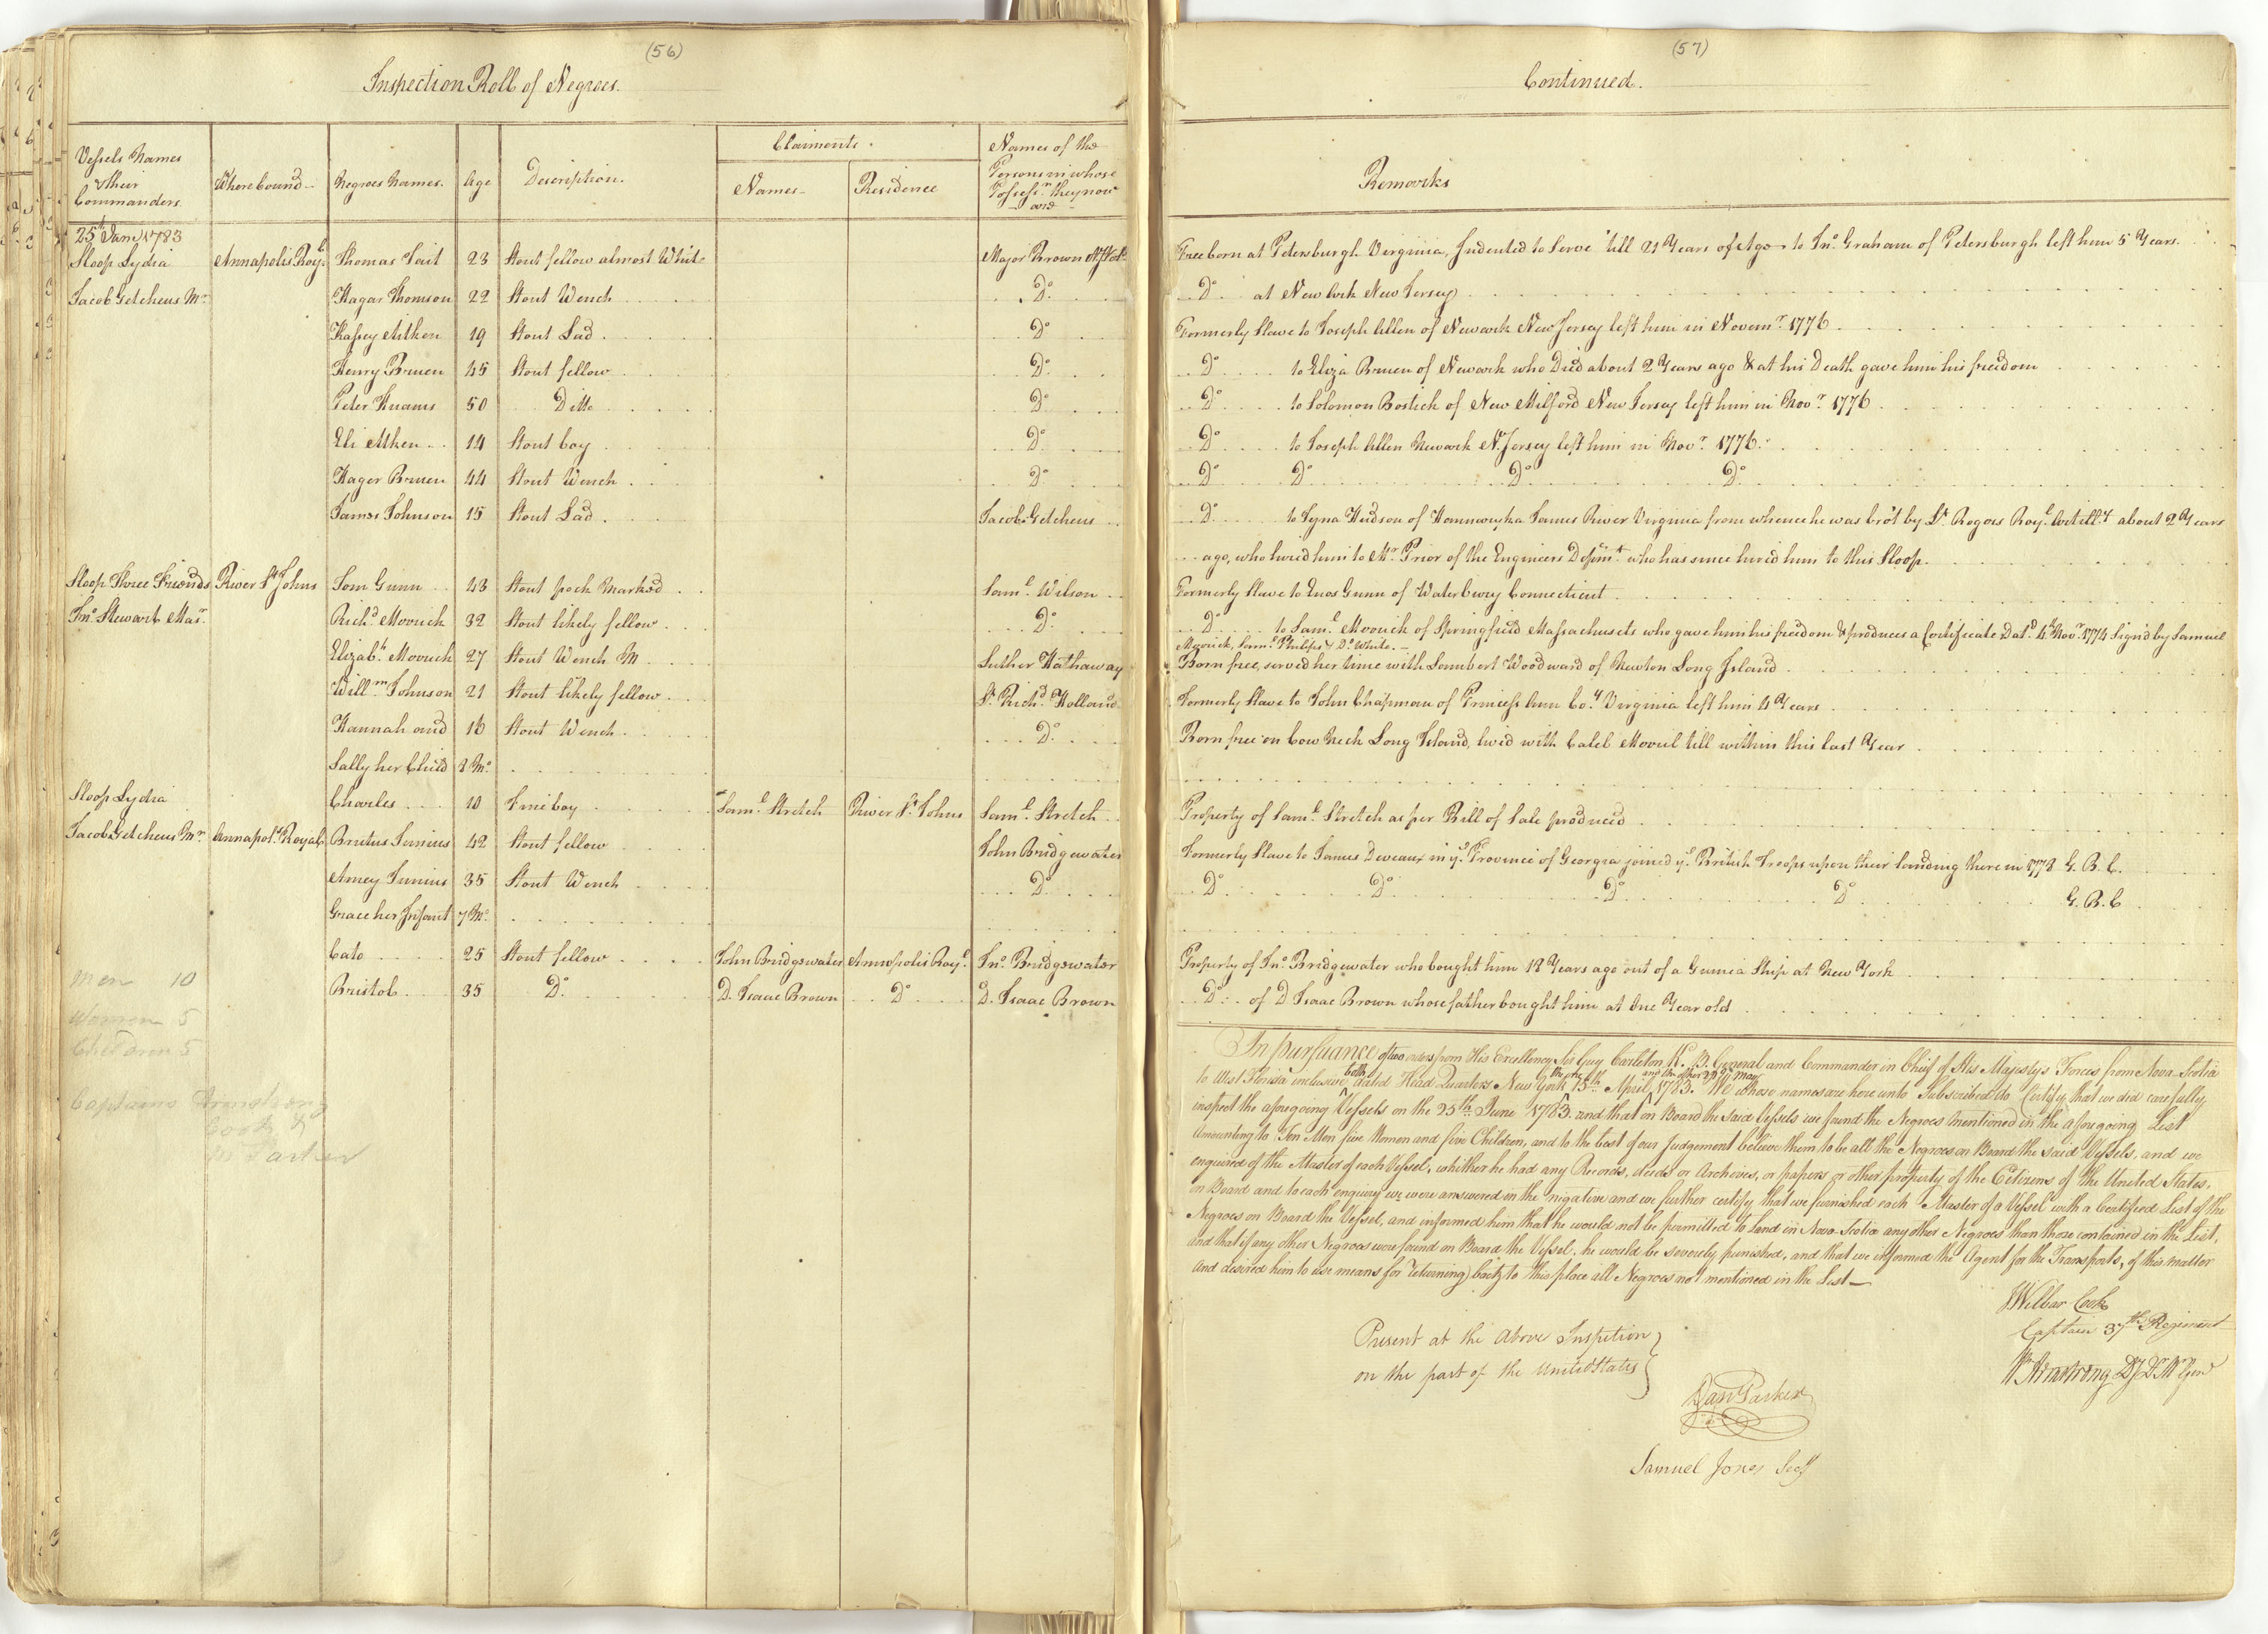 (56)
Inspection Roll of Negroes.
Vessels Names & their Commanders
Where bound
Negroes Names.
Age
Description.
Claimants.
Names
Residence
Names of the Persons in whose Possessn. they now are
25th June 1783
Sloop Lydia Annapolis Royl. Thomas Tait 23 Stout fellow almost White Major Brown
Jacob Getcheus Mr. Hagar Thomson 22 Stout Wench Do.
Kassey Aitken 19 Stout Lad Do.
Henry Bruen 45 Stout fellow Do.
Peter Knams 50 Ditto Do.
Eli Aitken 14 Stout boy Do.
Hager Bruen 44 Stout Wench Do.
James Johnson 15 Stout Lad Jacob Getcheus
Sloop Three Friends River St. Johns Tom Gunn 43 Stout pock marked Saml. Wilson
Jno. Stewart Mar. Richd. Morrick 32 Stout likely fellow Do.
Elizabth. Morrick 27 Stout Wench M Luther Hathaway
Willm. Johnson 21 Stout likely fellow Lt. Richd. Holland
Hannah and 16 Stout Wench Do.
Sally her Child 8 Mo.
Sloop Lydia Charles 10 Fine boy Saml. Stretch River St. Johns Saml. Stretch
Jacob Getcheus Mr. Annapols. Royal Brutus Junius 42 Stout fellow John Bridgewater
Amey Junius 35 Stout Wench Do.
Grace her Infant 7 Mo.
Cato 25 Stout fellow John Bridgewater Annapolis Royl. Jno. Bridgewater
Bristol 35 Do. D. Isaac Brown Do. D. Isaac Brown
Men 10
Women 5
Children 5
Captains Armstrong
Cook &
Mr Parker
(57)
Continued.
Remarks
Freeborn at Petersburgh Virginia, Indented to Serve 'till 21 Years of Age to Jno. Graham of Petersburgh left him 5 Years.
Do. at New Ark New Jersey
Formerly Slave to Joseph Allen of Newark New Jersey left him in Novemr. 1776
Do. to Eliza Bruen of Newark who Died about 2 Years ago & at his Death gave him his freedom
Do. to Solomon Bostick of New Milford New Jersey left him in Novr. 1776
Do. to Joseph Allen Newark N. Jersey left him in Novr. 1776.
Do. Do. Do. Do.
Do. to Tyna Hudson of James River Virginia from whence he was bro't by Lt. Rogers Royl. Artilly. about 2 Years
ago, who hired him to Mr. Prior of the Engineers Departmt. who has since hired him to this Sloop.
Formerly Slave to Enos Gunn of Waterbury Connecticut
Do. to Saml. Morrick of Springfield Massachusets who gave him his freedom & produces a Certificate Datd. 4th Novr. 1774 Sign'd by Samuel
Morrick, Saml. Philips & Do. White.
Born free, served her time with Lambert Woodward of Newton Long Island
Formerly Slave to John Chapman of Princess Ann Coy. Virginia left him 4 Years
Born free on Cow Neck Long Island, lived with Caleb Morrel till within this last Year
Property of Saml. Stretch as per Bill of Sale produced
Formerly Slave to James Deveaux in ye. Province of Georgia joined ye. British Troops upon their landing there in 1778 G. B. C.
Do. Do. Do. Do. G. B. C
Property of Jno. Bridgewater who bought him 12 Years ago out of a Guinea Ship at New York
Do. of D Isaac Brown whose father bought him at One Year old
In pursuance of two orders from His Excellency Sir Guy Carleton K. B. General and Commander in Chief of His Majesty's Forces from Nova Scotia
to West Florida inclusive both dated Head Quarters New York the one 15th April and the other 22d May 1783. We whose names are hereunto Subscribed do Certify that we did carefully
inspect the aforegoing Vessels on the 25th June 1783 and that on Board the said Vessels we found the Negroes mentioned in the aforegoing List
Amounting to Ten Men five Women and five Children, and to the best of our Judgement believe them to be all the Negroes on Board the said Vessels, and we
enquired of the Master of each Vessel, whether he had any Records, deeds or Archives, or papers or other property of the Citizens of the United States,
on Board and to each enquiry we were answered in the negative and we further certify that we furnished each Master of a Vessel with a Certified List of the
Negroes on Board the Vessel, and informed him that he would not be permitted to Land in Nova Scotia any other Negroes than those contained in the List,
and that if any other Negroes were found on Board the Vessel, he would be severely punished, and that we informed the Agent for the Transports, of this matter
and desired him to use means for returning back to this place all Negroes not mentioned in the List
Wilbar Cook
Captain 37th Regiment
Wm Armstrong
Present at the above Inspection
on the part of the United States
Dan Parker
Samuel Jones Secy